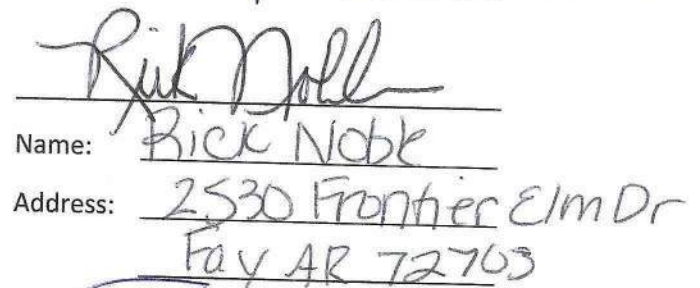 Rick Noble
Name: Rick Noble
Address: 2530 Frontier Elm Dr
Fay AR 72703